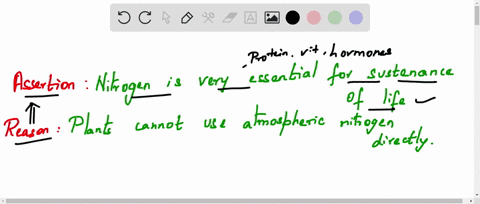 Protein, vit, hormones
Assertion : Nitrogen is very essential for sustenance
of life
Reason : Plants cannot use atmospheric nitrogen
directly.